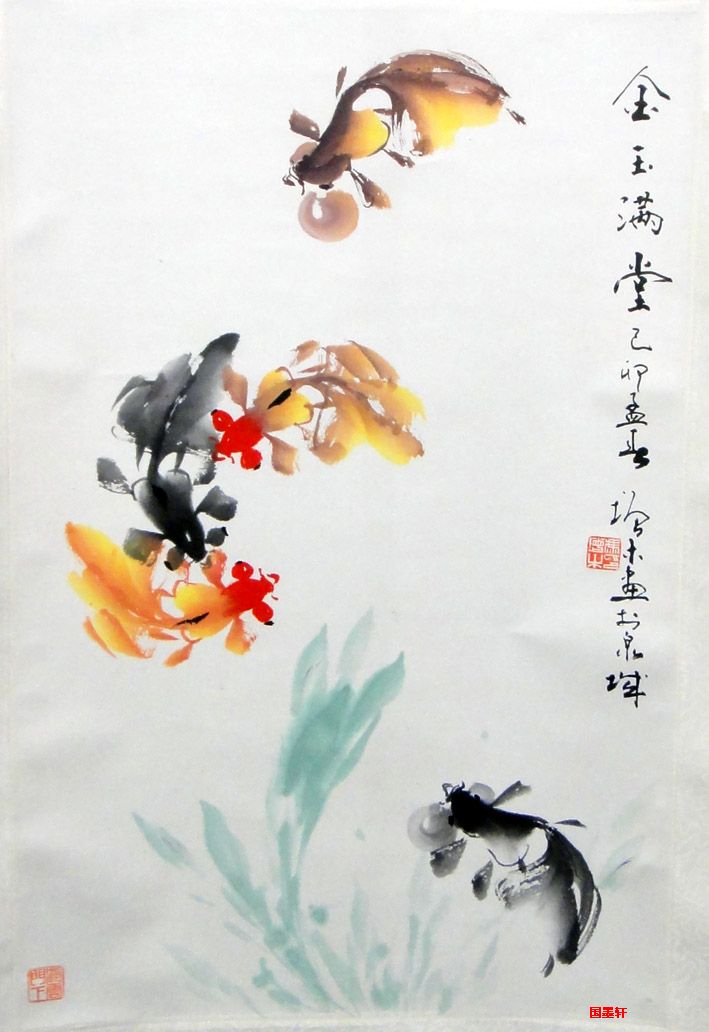 金玉满堂 己卯孟春 增木画于泉城
国墨轩